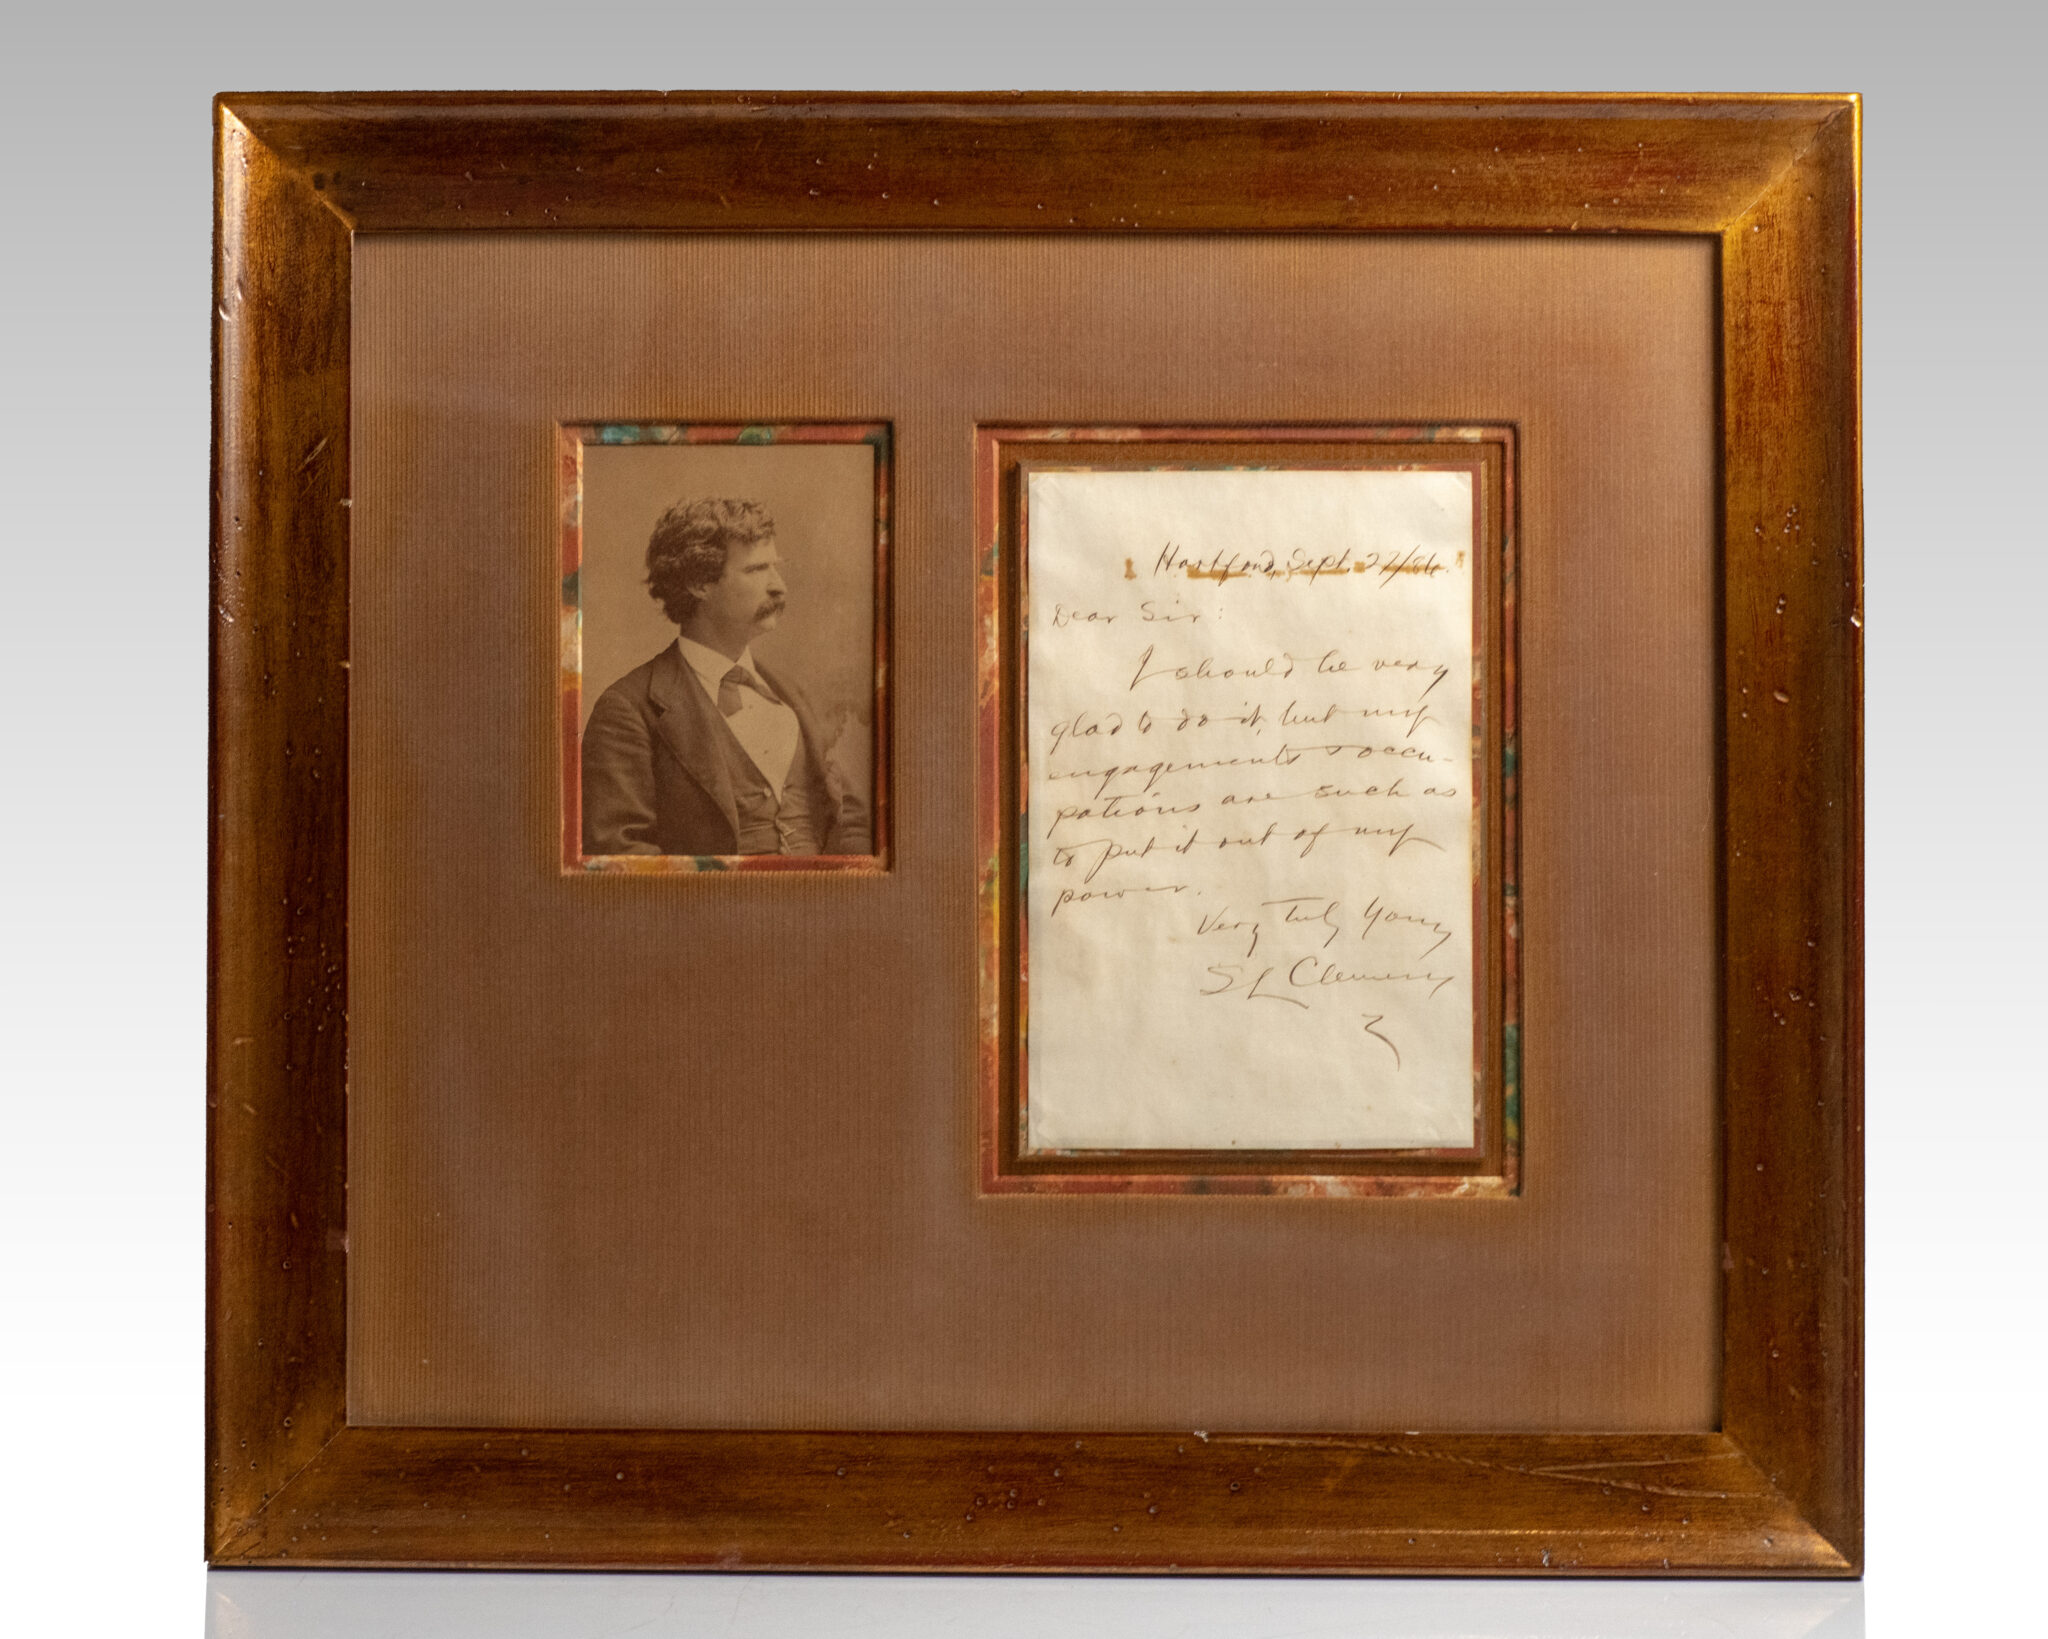 Hartford, Sept. 22/86.
Dear Sir:
I should be very
glad to do it, but my
engagements & occu-
pations are such as
to put it out of my
power.
Very Truly Yours
S L Clemens